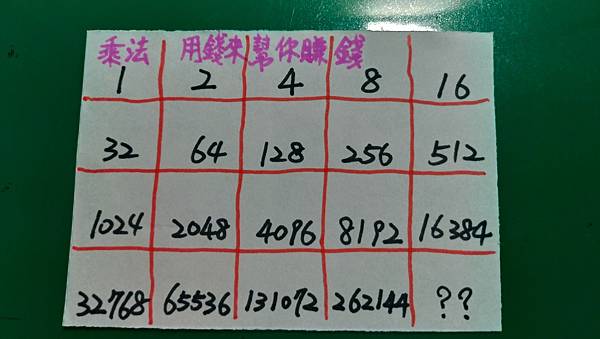 乘法 用錢來幫你賺錢
1 2 4 8 16
32 64 128 256 512
1024 2048 4096 8192 16384
32768 65536 131072 262144 ??